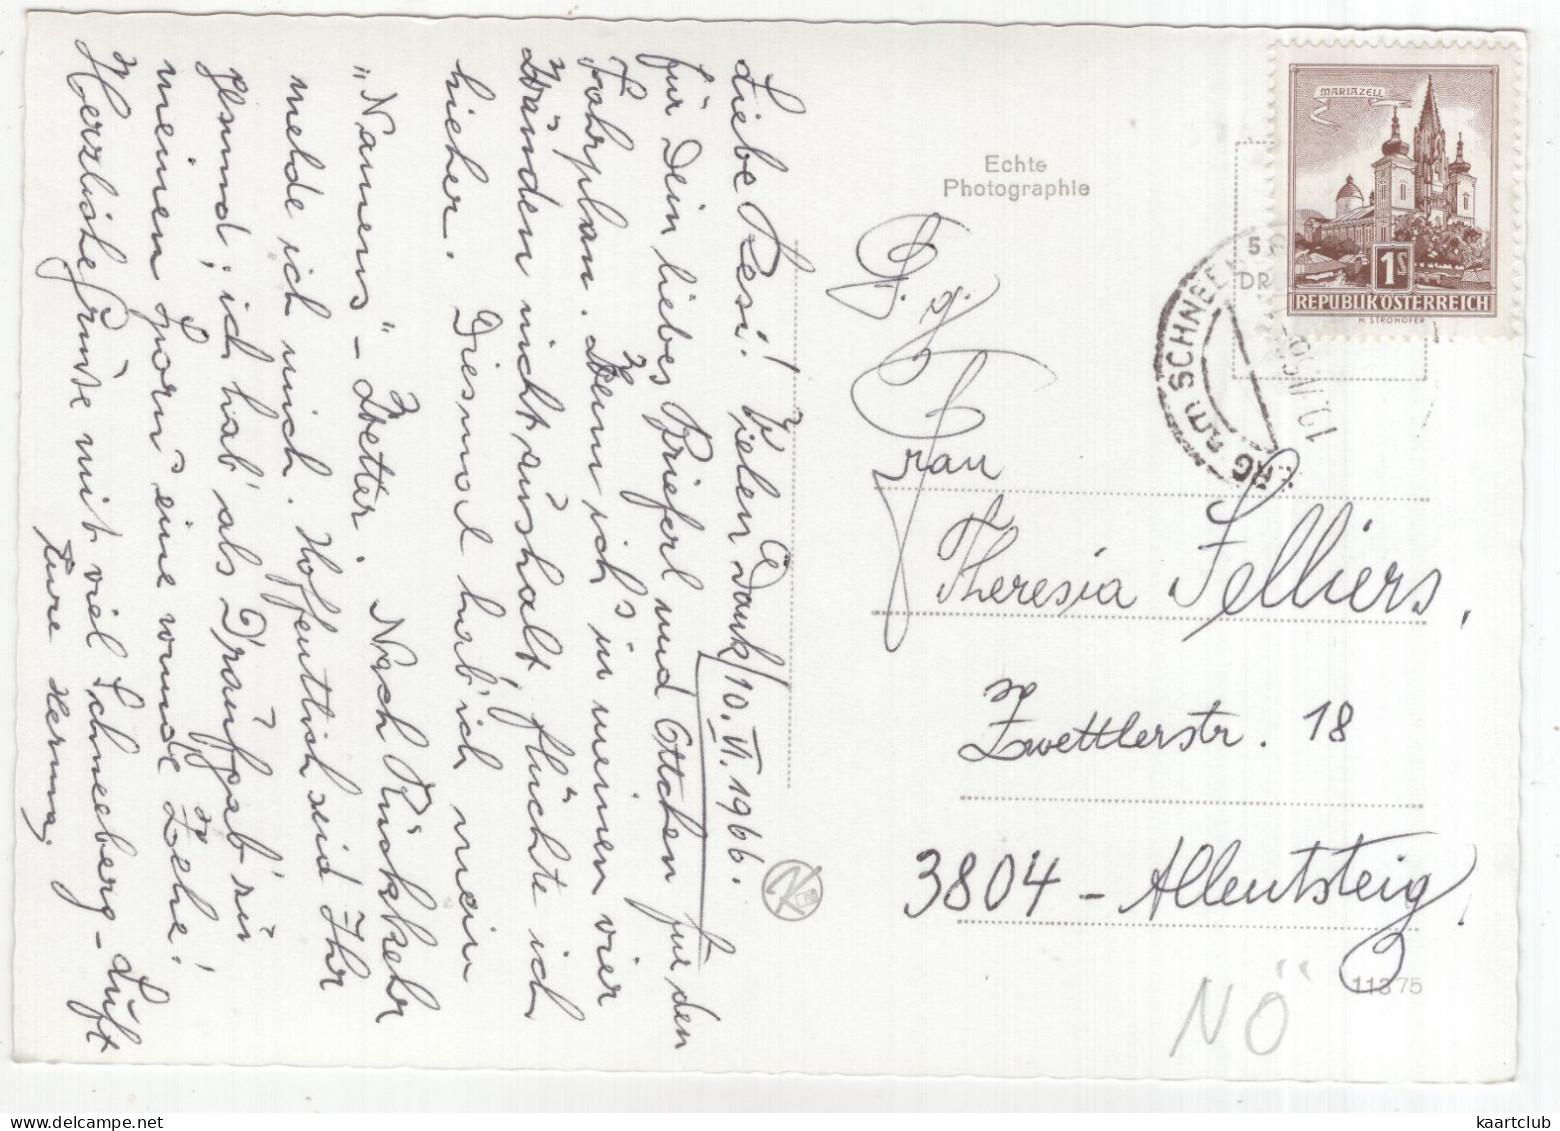 Liebe Resi! Vielen Dank / 10. VI. 1966.
für Dein liebes Brieferl und Ottchen für den
Fahrplan. Wenn ich's in meinen vier
Wänden nicht aushalt, flüchte ich
hieher. Diesmal hab' ich mein
"Namens"-Wetter. Nach Rückkehr
melde ich mich. Hoffentlich seid Ihr
gesund; ich hab' als Draufgab' zu
meinem „Sporn" eine wunde Zehe!
Herzliche Grüße mit viel Schneeberg-Luft
Eure Herma.
Echte
Photographie
MARIAZELL
1S
REPUBLIK ÖSTERREICH
H. STROHOFER
am SCHNEEB
Frau
Theresia Felliers,
Zwettlerstr. 18
3804 - Allentsteig,
11375
NÖ
K
kaartclub